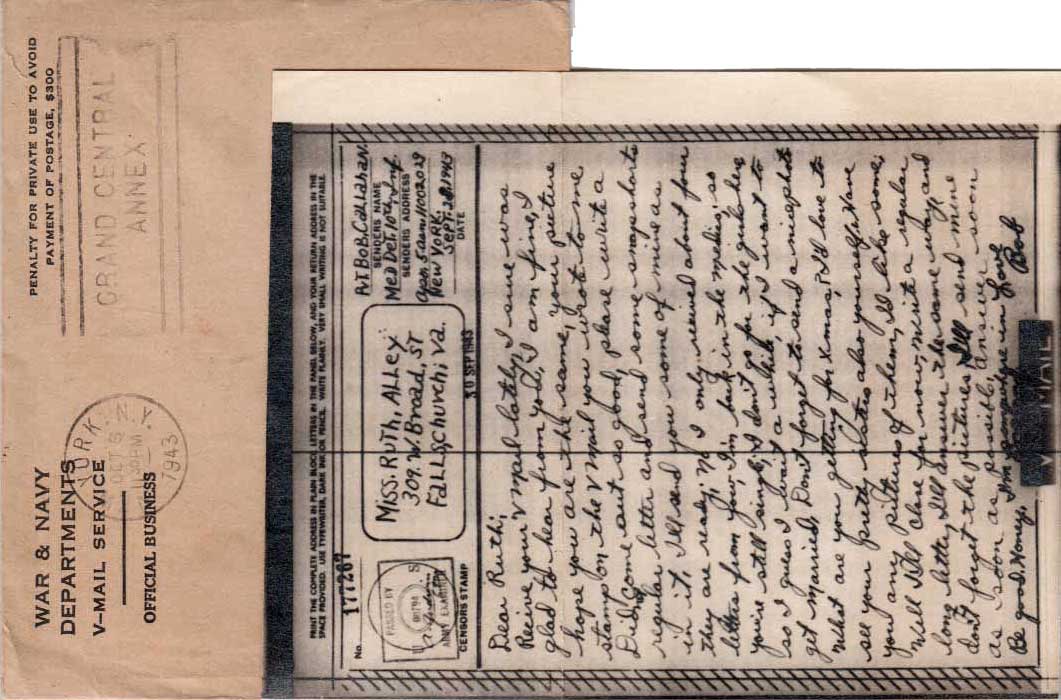 WAR & NAVY
DEPARTMENTS
V-MAIL SERVICE
OFFICIAL BUSINESS
PENALTY FOR PRIVATE USE TO AVOID
PAYMENT OF POSTAGE, $300
GRAND CENTRAL
ANNEX
YORK, N.Y.
OCT 5
PM
1943
PRINT THE COMPLETE ADDRESS IN PLAIN BLOCK LETTERS IN THE PANEL BELOW, AND YOUR RETURN ADDRESS IN THE
SPACE PROVIDED. USE TYPEWRITER, DARK INK OR PENCIL. WRITE PLAINLY. VERY SMALL WRITING IS NOT SUITABLE.
No.
PASSED BY
U S
ARMY EXAMINER
CENSORS STAMP
MISS. RUTH, ALLEY
309. W. Broad, ST
FALLS, Church, Va.
30 SEP 1943
PVT BOB. CALLAHAN.
SENDERS NAME
Med Det. 10th Inf
SENDERS ADDRESS
New York.
SEPT. 28, 1943
DATE
Dear Ruth;
Receive your Vmail lately, I sure was
glad to hear from you, I am fine, I
hope you are the same, your picture
stamp on the V mail you wrote to me
Didn't come out so good, please write a
regular letter and send some snapshots
in it. I'll send you some of mine as
they are ready. No I only received about four
letters from you. I'm back in the medics, so
you're still single, I don't go for the guk here
so I guess I wait a while, if I want to
get married. Don't forget to send a microphoto
What are you getting for xmas, I'd love to
see your pretty sister also yourself. Have
you any pictures of them, I'd like some.
Well I'll close for now, write a regular
long letter, I'll answer the same way, and
dont forget the pictures, I'll send mine
as soon as possible, answer soon
I'm somewhere in Love
Be good Honey. Bob
V MAIL